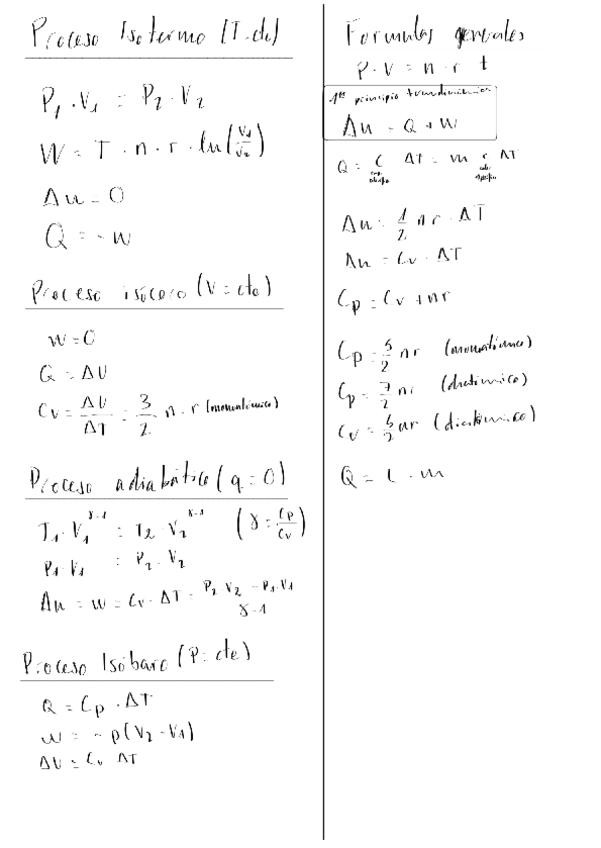 Proceso Isotermo (T. cte)
P₁ · V₁ = P₂ · V₂
W = T · n · r · ln(V₁/V₂)
Δu = 0
Q = - w
Proceso isócoro (V = cte)
W = 0
Q = ΔU
Cv = ΔU/ΔT = 3/2 n · r (monoatómico)
Proceso adiabático (q = 0)
T₁ · V₁^γ-1 = T₂ · V₂^γ-1 (γ = Cp/Cv)
P₁ · V₁ = P₂ · V₂
Δu = w = Cv · ΔT = P₂ V₂ - P₁ · V₁ / γ-1
Proceso Isóbaro (P = cte)
Q = Cp · ΔT
w = - p(V₂ - V₁)
ΔU = Cv ΔT
Formulas generales
P · V = n · r t
1er principio termodinámica
Δu = Q + W
Q = C ΔT = m c ΔT
Δu = 1/2 n r · ΔT
Δu = Cv · ΔT
Cp = Cv + nr
Cp = 5/2 nr (monoatómico)
Cp = 7/2 nr (diatómico)
Cv = 5/2 nr (diatómico)
Q = L · m